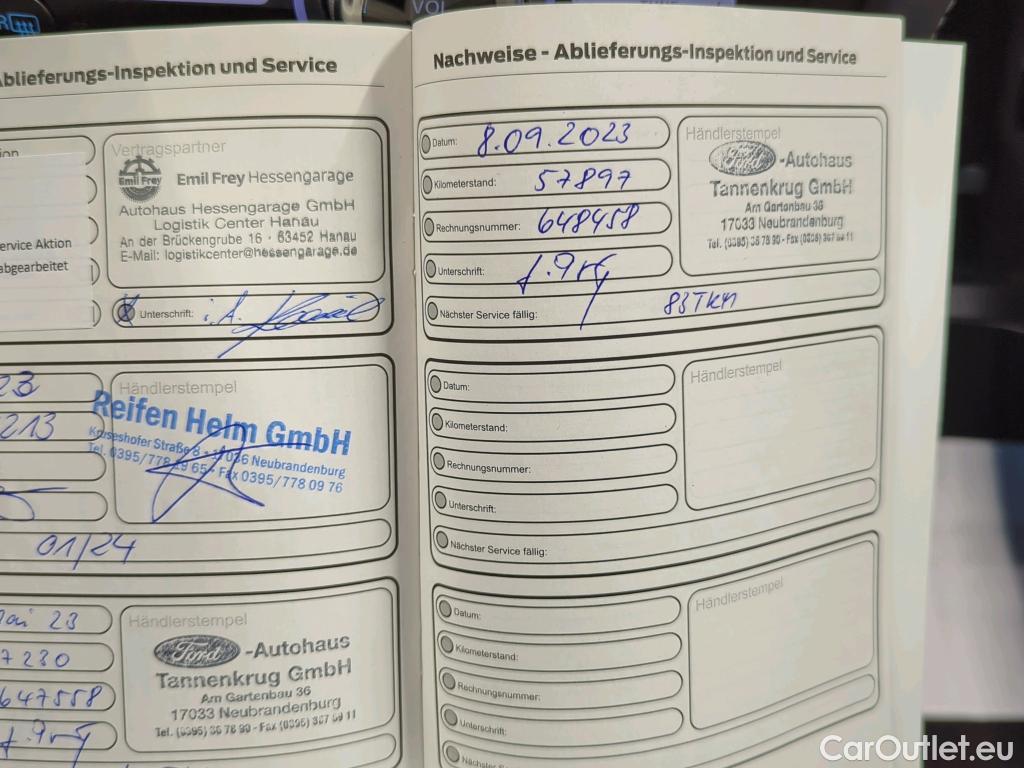 VOL
Ablieferungs-Inspektion und Service
Vertragspartner
Emil Frey
Emil Frey Hessengarage
Autohaus Hessengarage GmbH
Logistik Center Hanau
An der Brückengrube 16 · 63452 Hanau
E-Mail: logistikcenter@hessengarage.de
ervice Aktion
abgearbeitet
Unterschrift: i.A.
23
213
Händlerstempel
Reifen Helm GmbH
Neubrandenburg
Fax 0395/778 09 76
01/24
23
7230
647558
Händlerstempel
Ford -Autohaus
Tannenkrug GmbH
Am Gartenbau 36
17033 Neubrandenburg
Nachweise - Ablieferungs-Inspektion und Service
Datum: 8.09.2023
Kilometerstand: 57897
Rechnungsnummer: 648458
Unterschrift:
Nächster Service fällig: 83TKM
Händlerstempel
Ford -Autohaus
Tannenkrug GmbH
Am Gartenbau 36
17033 Neubrandenburg
Datum:
Kilometerstand:
Rechnungsnummer:
Unterschrift:
Nächster Service fällig:
Händlerstempel
Datum:
Kilometerstand:
Rechnungsnummer:
Unterschrift:
Nächster Service fällig:
Händlerstempel
CarOutlet.eu